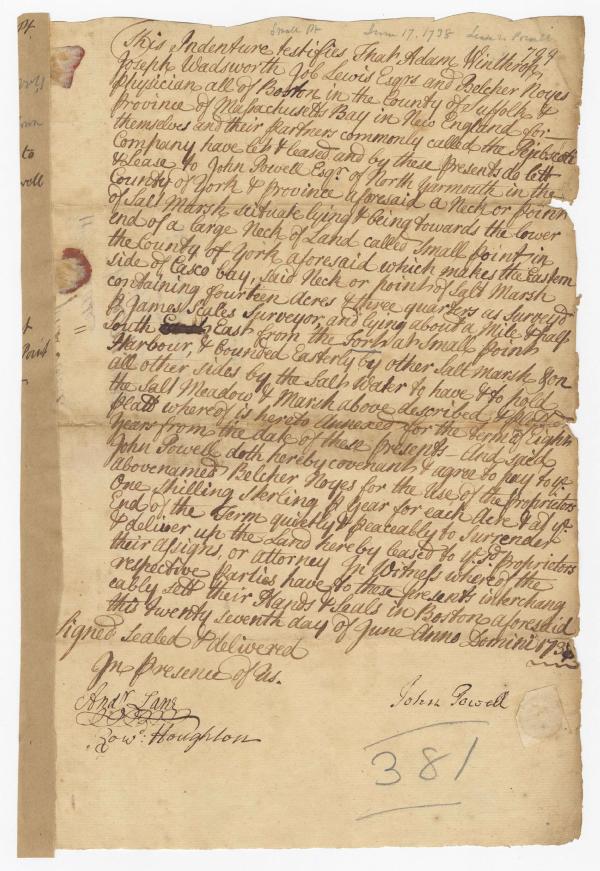 Small Pt June 17. 1738 Lease to Powell
794
This Indenture testifies That Adam Winthrop
Joseph Wadsworth Job Lewis Esqrs and Belcher Noyes
Physician all of Boston in the County of Suffolk &
Province of Massachusetts Bay in New England for
themselves and their Partners commonly called the Pejebscott
Company have let & leased and by these Presents do lett
& Lease to John Powell Esqr. of North Yarmouth in the
County of York & Province aforesaid a Neck or point
of Salt Marsh scituate lying & being towards the lower
end of a large Neck of Land called Small point in
the County of York aforesaid which makes the Eastern
side of Casco bay, said Neck or point of Salt Marsh
containing fourteen Acres & three quarters as Survey'd
p James Scales Surveyor, and lying about a Mile & half
South East from the Fort at Small Point
Harbour, & bounded Easterly by other Salt marsh & on
all other sides by the Salt Water to have & to hold
the Salt Meadow & Marsh above described &
Platt whereof is hereto Annexed for the term of Eight
Years from the date of these Presents - And said
John Powell doth hereby covenant & agree to pay to ye
abovenamed Belcher Noyes for the Use of the Proprietors
One shilling Sterling p Year for each Acre & at ye.
End of the Term quietly & peaceably to Surrender
& deliver up the Land hereby leased to ye. sd. Proprietors
their Assigns, or attorney In Witness whereof the
respective Parties have to these Presents interchang
eably sett their Hands & Seals in Boston aforesaid
this Twenty seventh day of June Anno Domini 1738
Signed Sealed & delivered
In Presence of Us.
Andw Lane
John Powell
Houghton
381
Pt.
to
Powell
Point